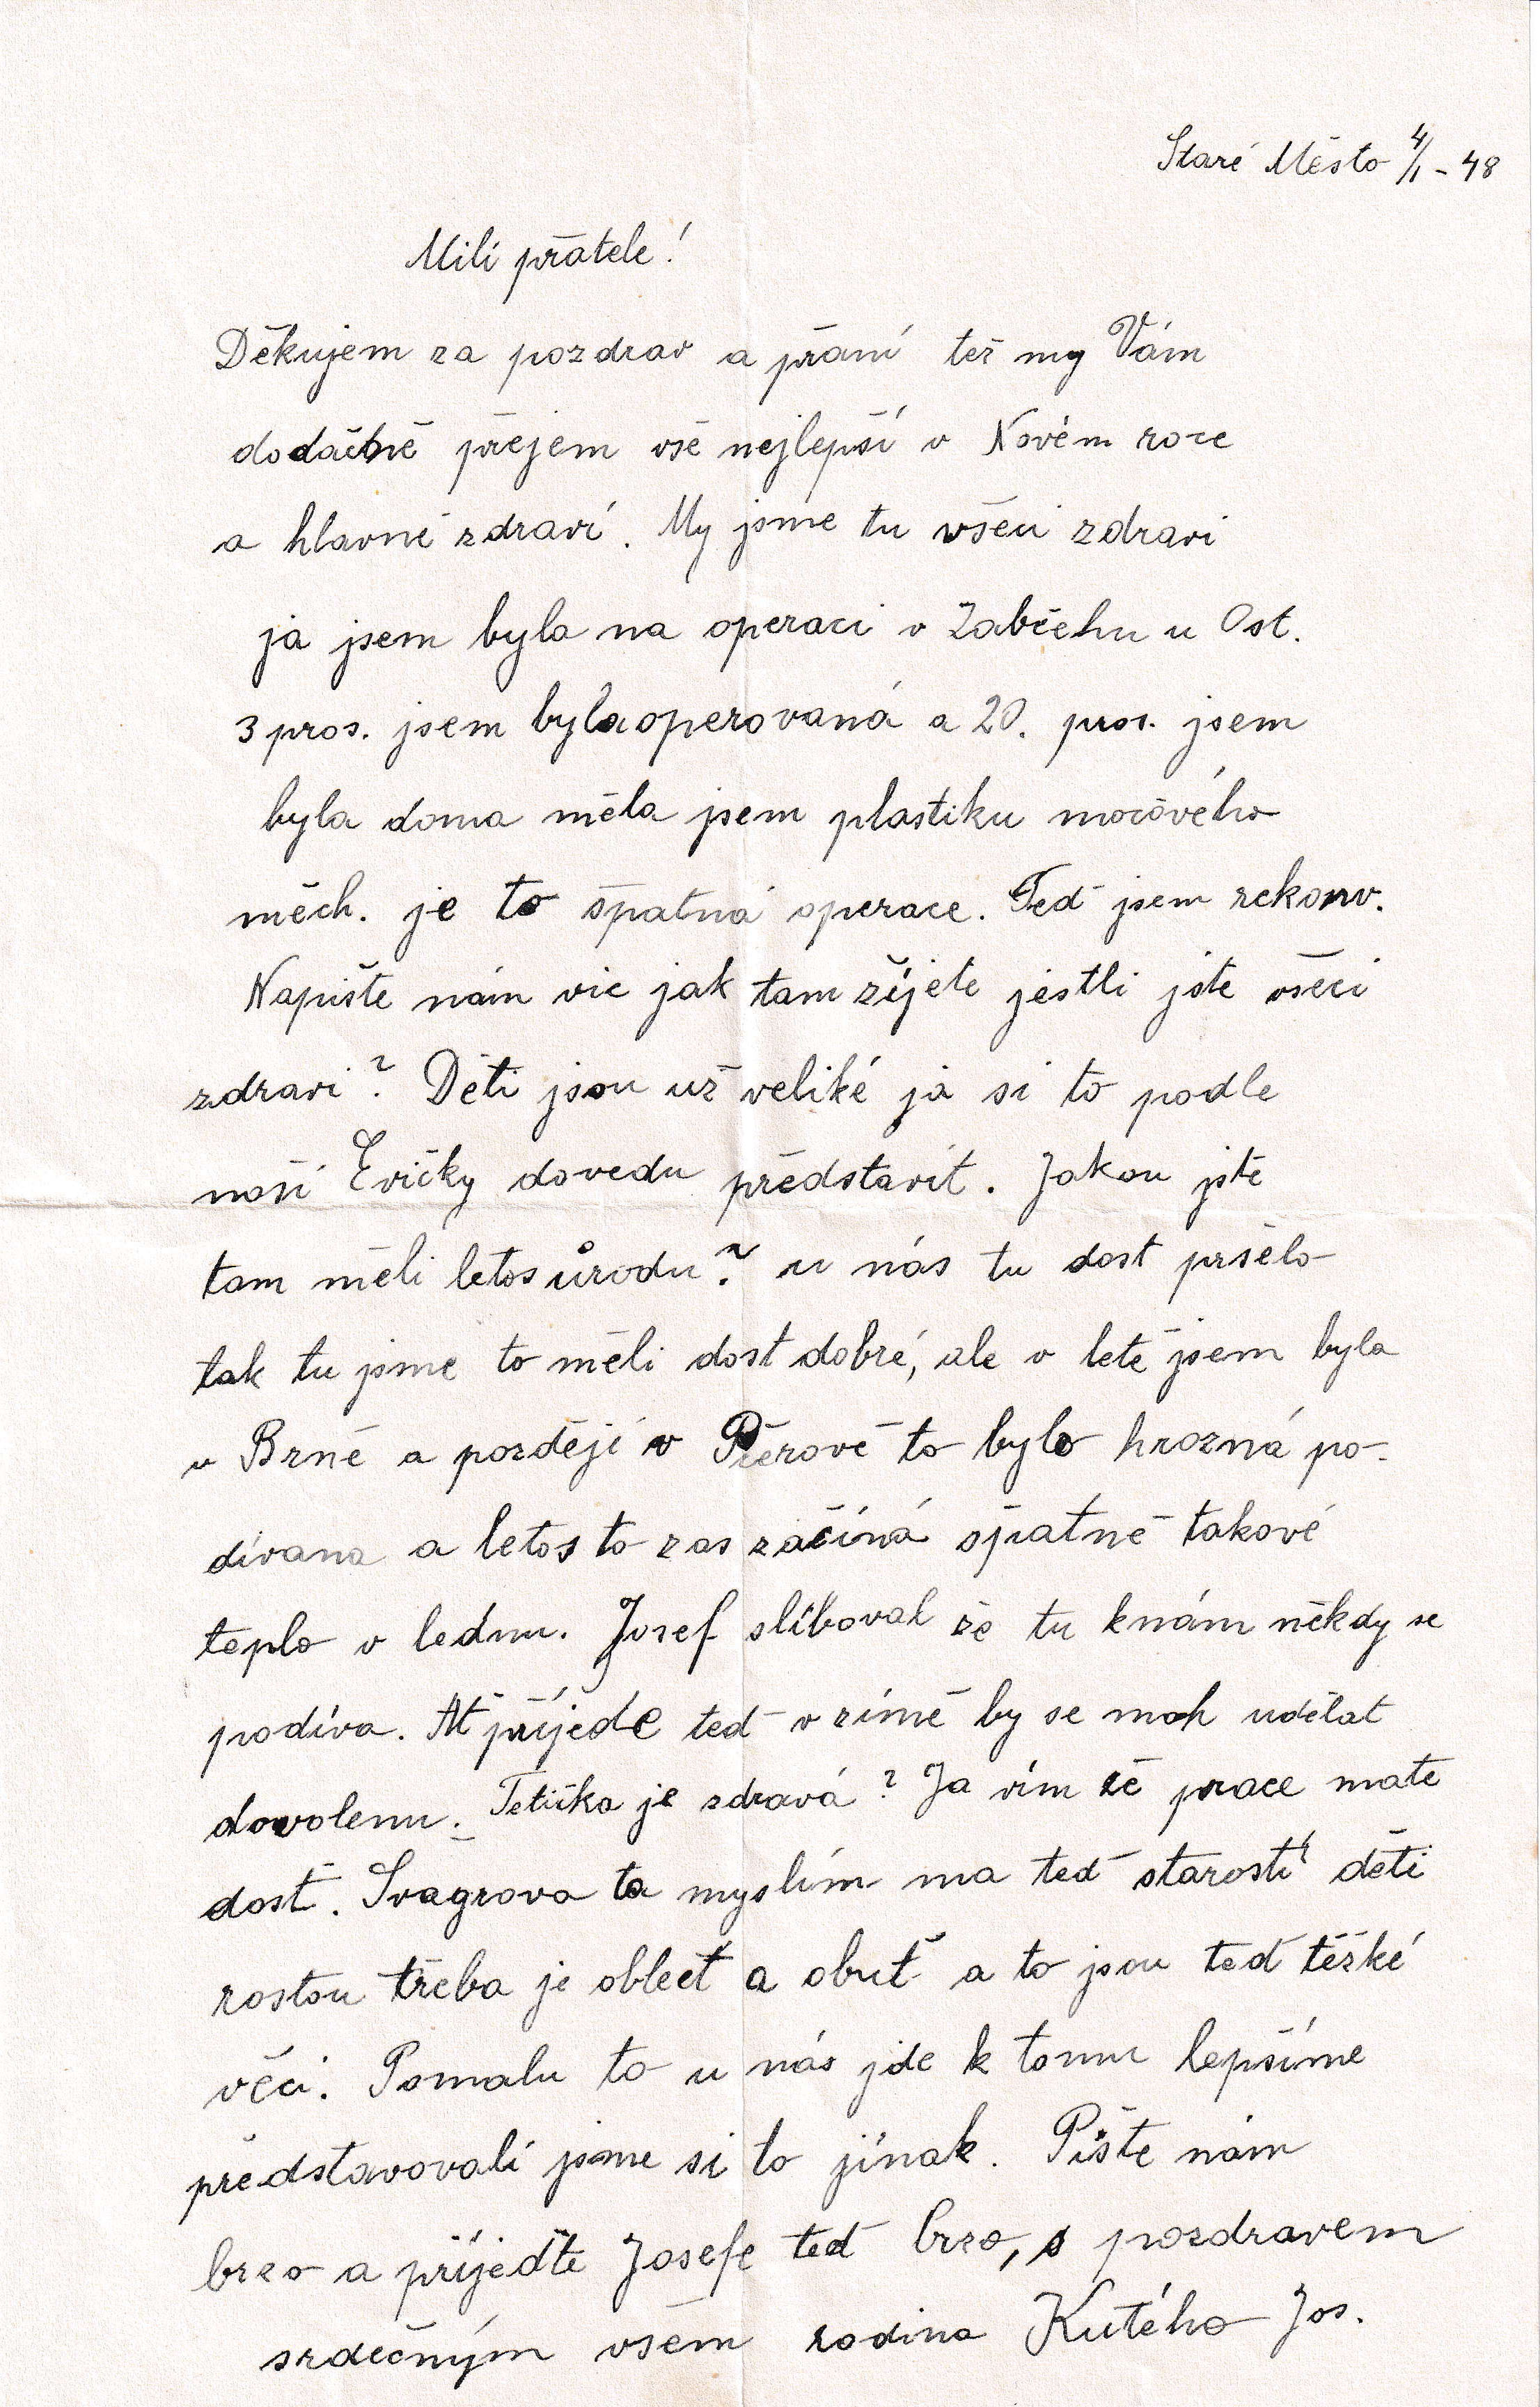 Staré Město 4/1 - 48
Milí přátele!
Děkujem za pozdrav a přaní též my Vám
dodáčbně přejem vše nejlepší v Novém roce
a hlavně zdraví. My jsme tu všeci zdravi
ja jsem byla na operaci v Zabřehu u Ost.
3 pros. jsem byla operovaná a 20. pros. jsem
byla doma měla jsem plastiku močového
měch. je to špatná operace. Teď jsem rekonv.
Napište nám víc jak tam žijete jestli jste všeci
zdravi? Děti jsou už veliké já si to podle
naší Evičky dovedu představit. Jakou jste
tam měli letos ůrodu? u nás tu dost pršelo
tak tu jsme to měli dost dobré, ale v létě jsem byla
v Brně a pozdějí v Přerově to bylo hrozná po-
dívana a letos to zas začíná špatně takové
teplo v lednu. Josef slíboval že tu knám někdy se
podíva. Ať příjede teď v zimě by se moh udělat
dovolenu. Tetička je zdravá? Ja vím že prace mate
dost. Švagrova ta myslím ma teď starostí děti
rostou třeba je oblect a obut a to jsou teď těžké
věci. Pomalu to u nás jde k tomu lepšíme
představovalí jsme si to jínak. Pište nám
brzo a příjeďte Josefe teď brzo, s pozdravem
srdečným všem rodina Kutého Jos.